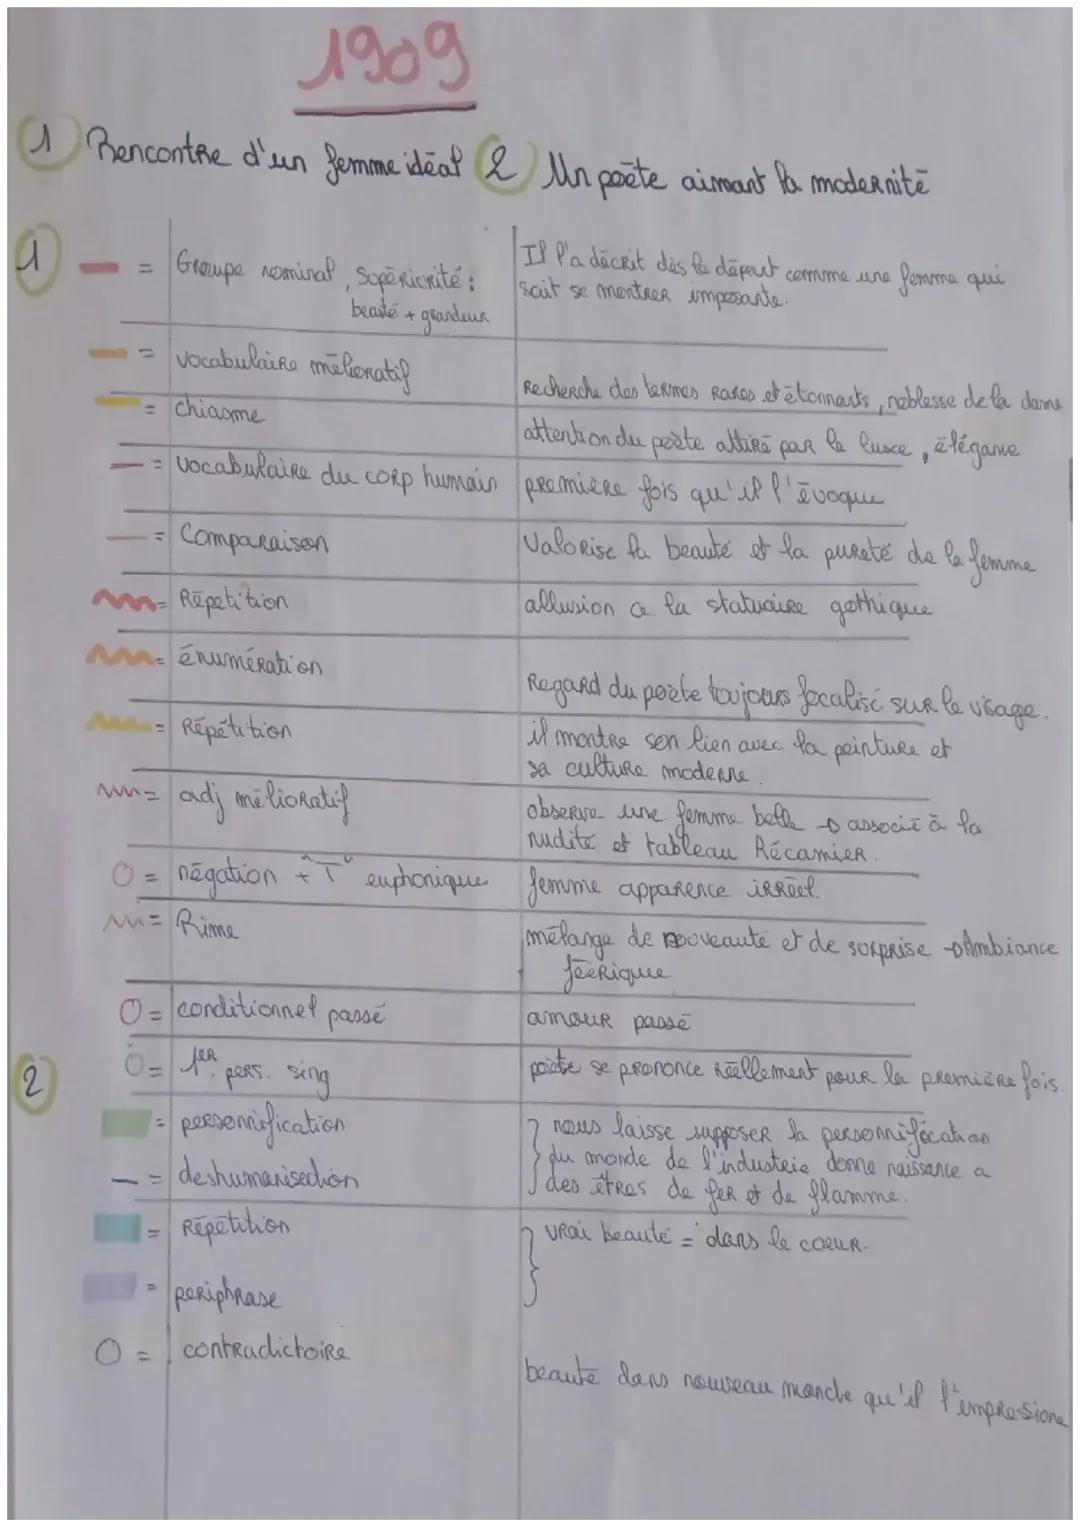 1909
1 Rencontre d'un femme idéal 2 Un poète aimant la modernité
1 = Groupe nominal, Supériorité : beauté + grandeur
Il l'a décrit dès le départ comme une femme qui
sait se montrer imposante.
= vocabulaire mélioratif
Recherche des termes rares et étonnants, noblesse de la dame
= chiasme
attention du poète attiré par le luxe, élégance
= vocabulaire du corp humain
première fois qu'il l'évoque
= Comparaison
Valorise la beauté et la pureté de la femme
= Répetition
allusion a la statuaire gothique
= énumération
Regard du poète toujours focalisé sur le visage.
= Répétition
il montre son lien avec la peinture et
sa culture moderne.
= adj mélioratif
observe une femme belle → associé à la
nudité et tableau Récamier.
= négation + "T" euphonique
femme apparence irréel.
= Rime
mélange de nouveauté et de surprise → Ambiance
féérique
= conditionnel passé
amour passé
2 = 1ER pers. sing
poète se prononce réellement pour la première fois.
= personnification
nous laisse supposer la personnification
du monde de l'industrie donne naissance a
des êtres de fer et de flamme.
= deshumanisedion
= Répétition
vrai beauté = dans le coeur.
= periphrase
= contradictoire
beauté dans nouveau monde qu'il l'impressione